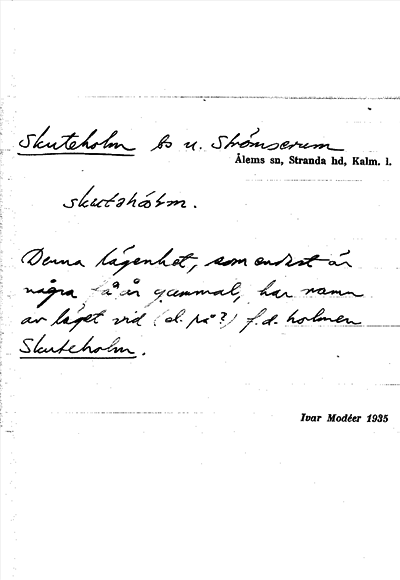 Skuteholm bs u. Strömserum
Ålems sn, Stranda hd, Kalm. l.
skutəhóləm.
Denna lägenhet, som endast är
några få år gammal, har namn
av läget vid (el. på?) f.d. holmen
Skuteholm.
Ivar Modéer 1935